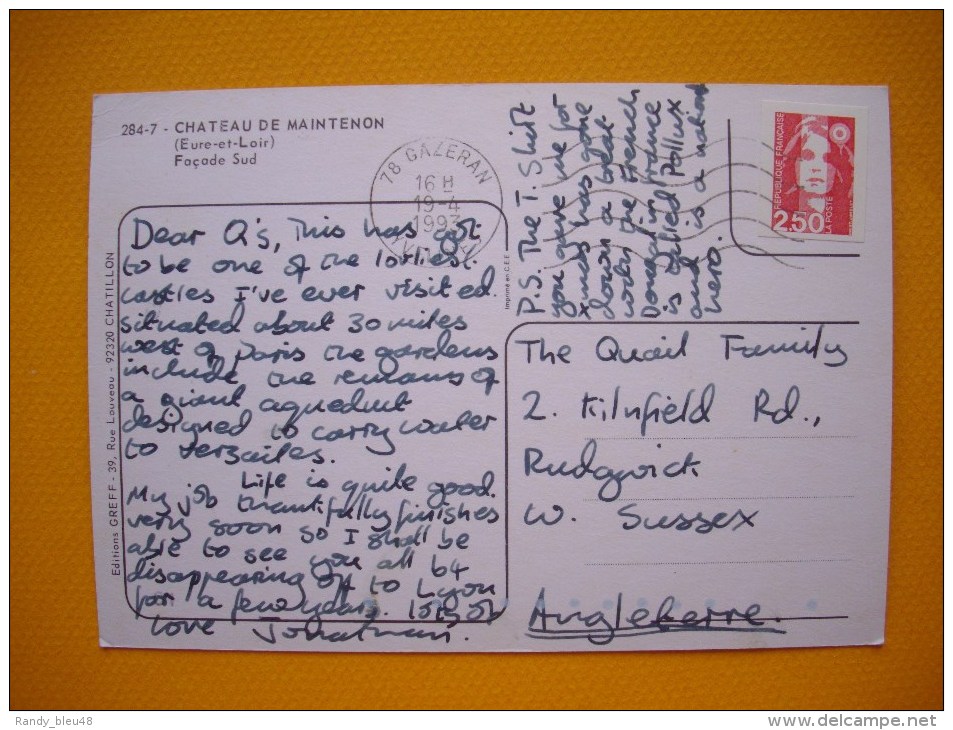 284-7 - CHATEAU DE MAINTENON
(Eure-et-Loir)
Façade Sud
78 GAZERAN
16 H
19-4
1993
YVELINES
RÉPUBLIQUE FRANÇAISE
2,50
LA POSTE
P.S. The T. Shirt
you gave me for
xmas has gone
down a treat
with the French
Dougal in France
is called Pollux
and is a national
hero.
Dear Q's, This has got
to be one of the lovliest
castles I've ever visited.
situated about 30 miles
west of Paris the gardens
include the remains of
a giant aqueduct
designed to carry water
to Versailes.
Life is quite good.
My job thankfully finishes
very soon so I shall be
able to see you all b4
disappearing off to Lyon
for a few years. lots of
love Jonathan.
The Quail Family
2. Kilnfield Rd.,
Rudgwick
W. Sussex
Angleterre.
Editions GREFF - 39, Rue Louveau - 92320 CHATILLON
Imprimé en C.E.E.
Randy_bleu48